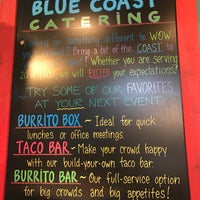 BLUE COAST
CATERING
Looking for something different to WOW
your crowd? Bring a bit of the COAST to
Whether you are serving
20 or we will EXCEED your expectations!
TRY SOME OF OUR FAVORITES
AT YOUR NEXT EVENT
BURRITO BOX ~ Ideal for quick
lunches or office meetings
TACO BAR ~ Make your crowd happy
with our build-your-own taco bar
BURRITO BAR ~ Our full-service option
for big crowds and big appetites!